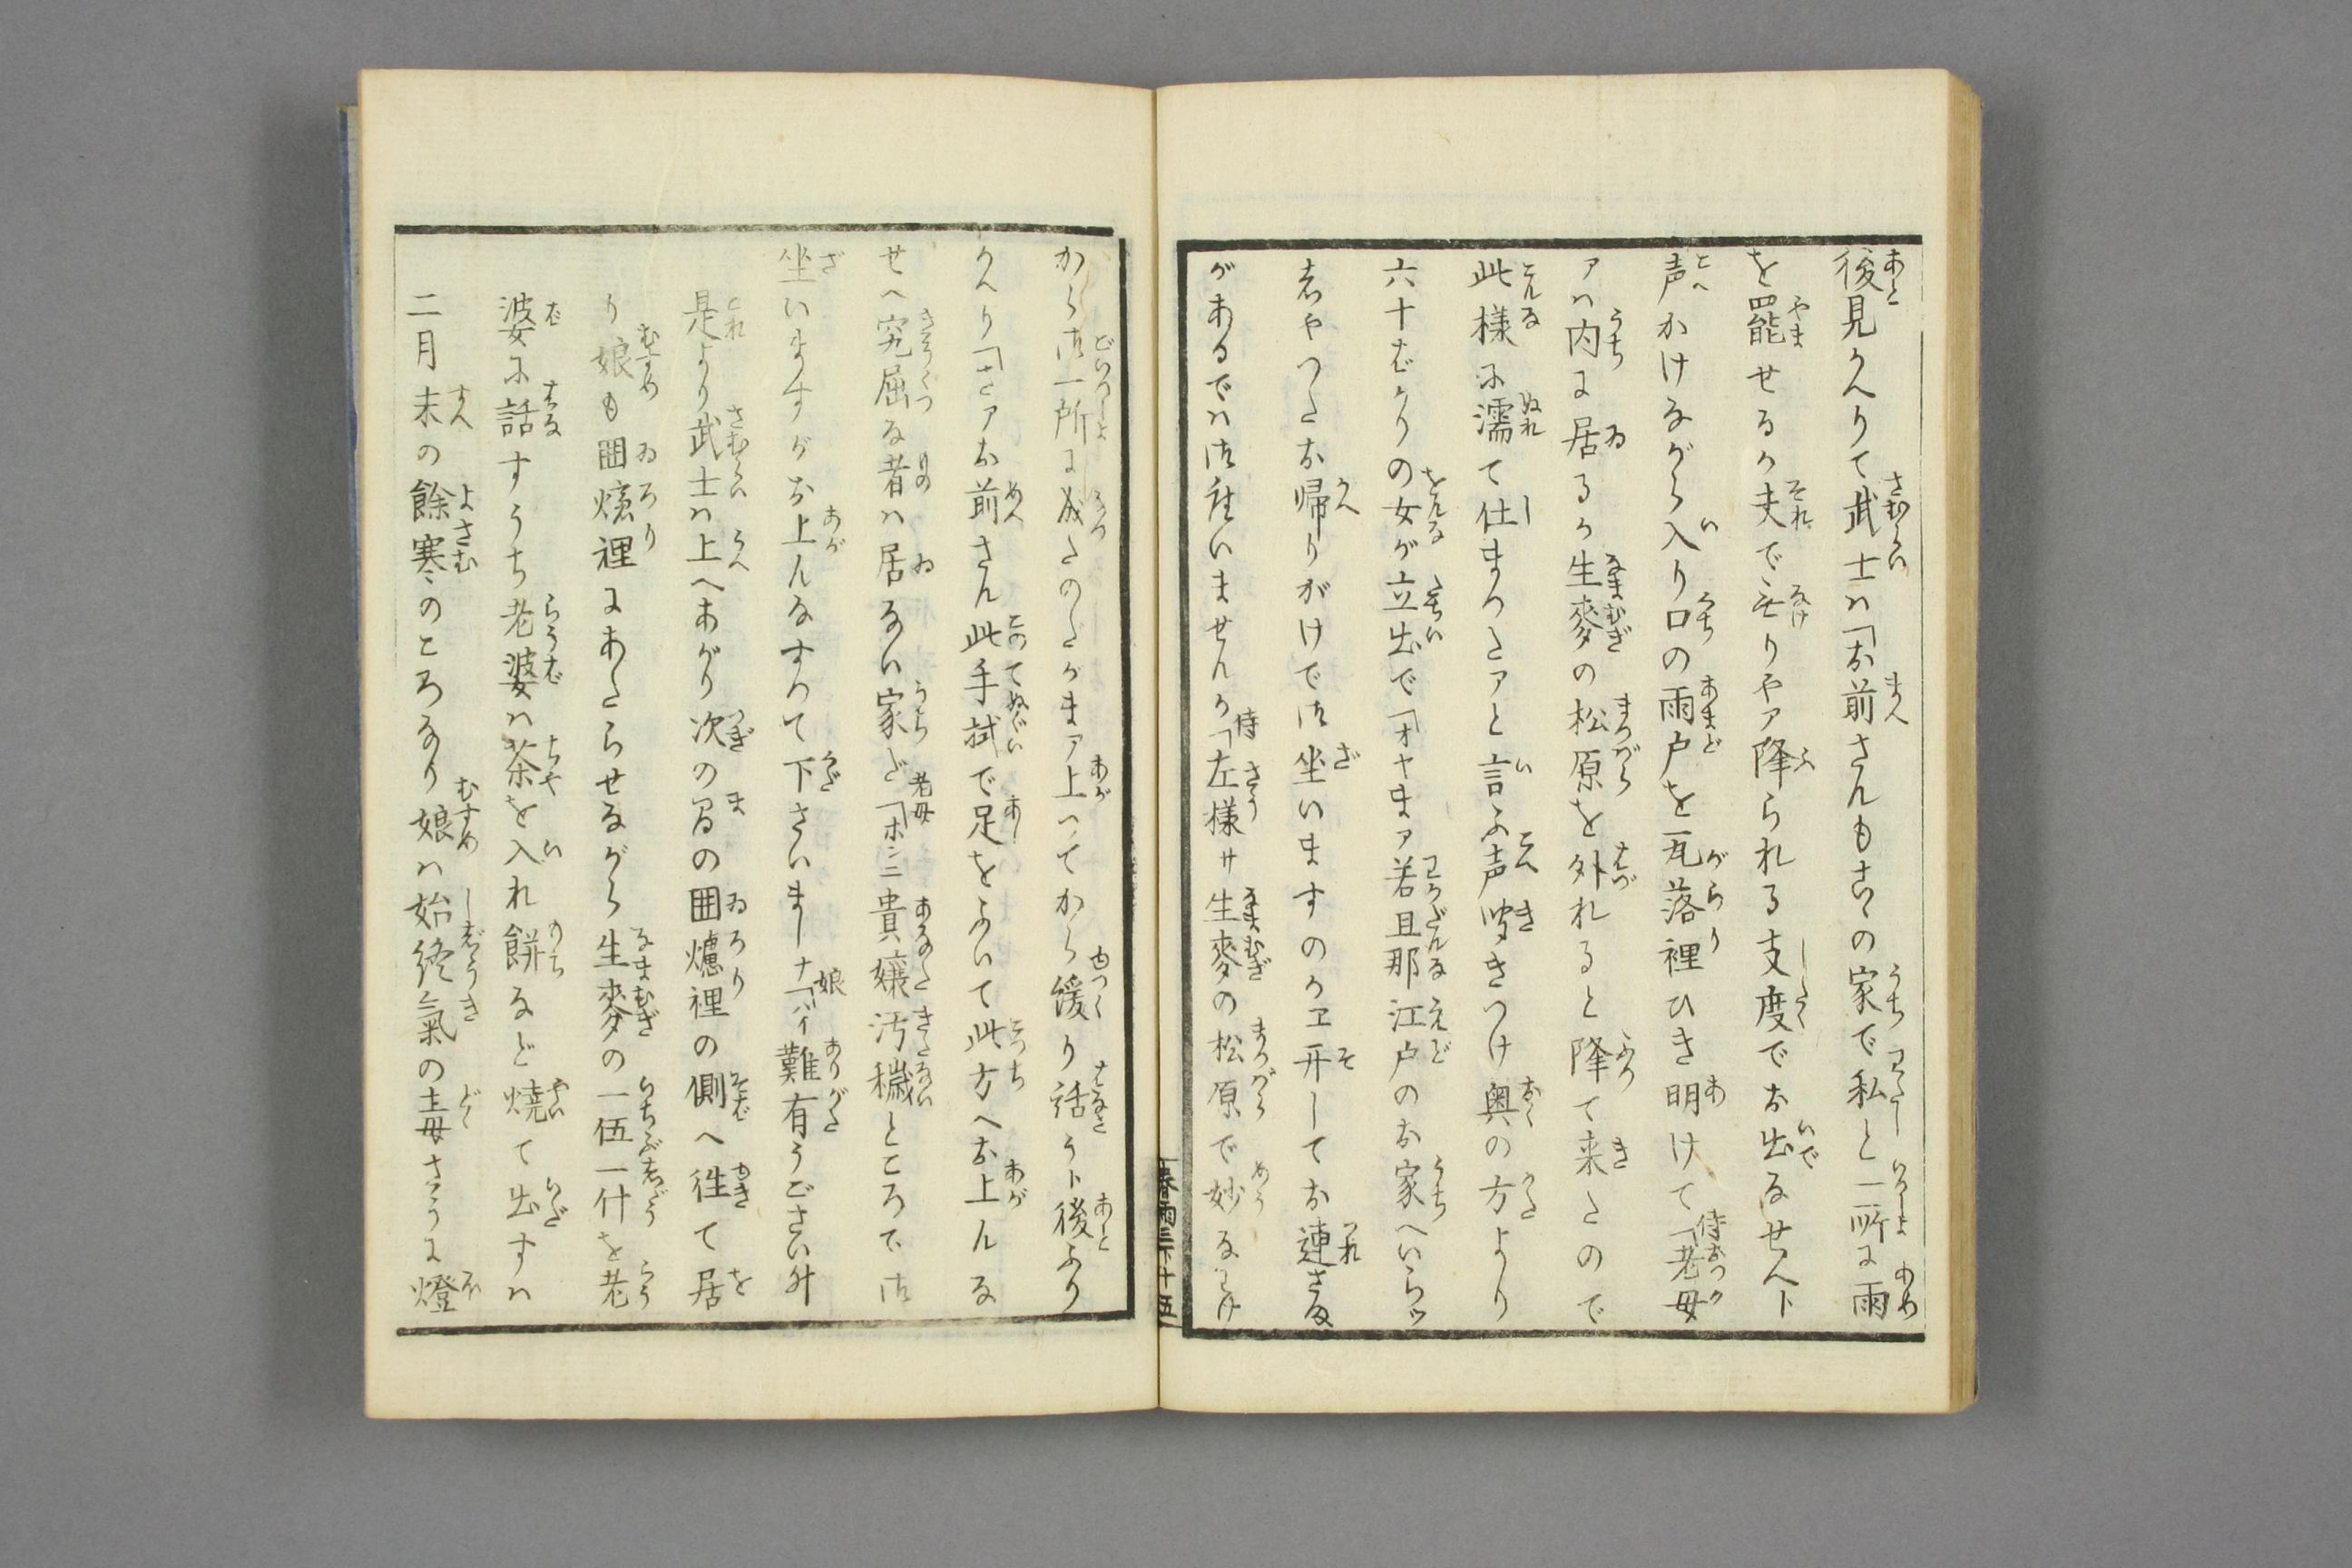 後見かへりて武士ハ「お前さんもこゝの家で私と一所に雨
を罷せるか夫で無りやア降られる支度でお出なせへト
声かけながら入り口の雨戸を瓦落裡ひき明けて侍「老母
アハ内に居るか生麥の松原を外れると降て来たので
此様に濡て仕まつたアと言ふ声聞きつけ奥の方より
六十ばかりの女が立出で「オヤまア若旦那江戸のお家へいらツ
しやつたお帰りがけで御坐いますのかヱ开してお連さま
があるでハ御座いませんか侍「左様サ生麥の松原で妙なわけ
から御一所に成たのだがまア上ツてから緩り話うト後ふり
かへり「さアお前さん此手拭で足をふいて此方へお上んな
せへ究屈な者ハ居ない家だ老母「ホンニ貴嬢汚穢ところで御
坐いますがお上んなすつて下さいましナ娘「ハイ難有うござい升
是より武士ハ上へあがり次の間の囲爐裡の側へ徃て居
り娘も囲爐裡にあたらせながら生麥の一伍一什を老
婆に話すうち老婆ハ茶を入れ餅など焼て出すハ
二月末の餘寒のころなり娘ハ始終氣の毒さうに燈
春雨三下十五